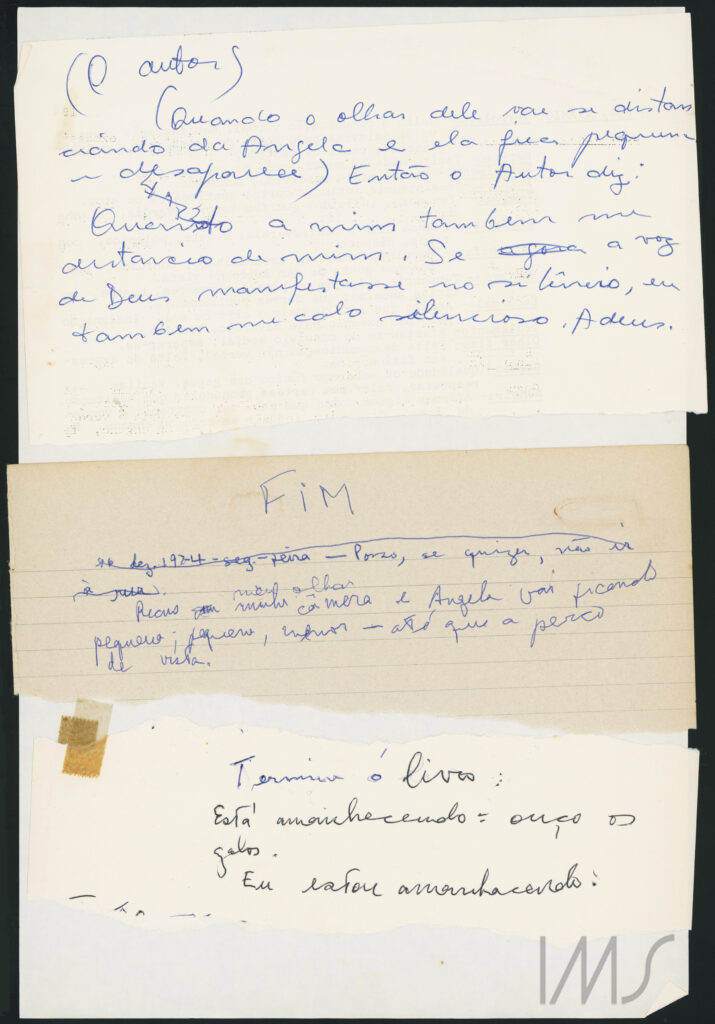 (O autor)
(Quando o olhar dele vai se distan
ciando da Angela e ela fica pequena
e desaparece) Então o Autor diz:
Quanto a mim também me
distancio de mim. Se agora a voz
de Deus manifestasse no silêncio, eu
também me calo silencioso. Adeus.
FiM
dez. 1974 - seg.-feira — Posso, se quizer, não ir
à rua.
meu olhar
Recuo minha câmera e Angela vai ficando
pequena, pequena, menor — até que a perco
de vista.
Termina o livro:
Está amanhecendo: ouço os
galos.
Eu estou amanhecendo:
IMS